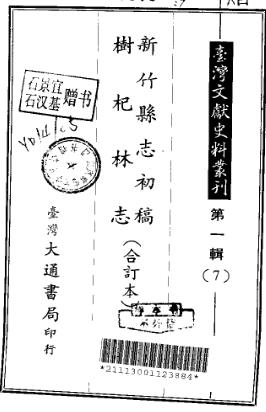 臺灣文獻史料叢刊
第一輯
(7)
新竹縣志初稿
樹杞林志
(合訂本)
臺灣大通書局印行
石景宜
石汉基
赠书
*21113001123884*